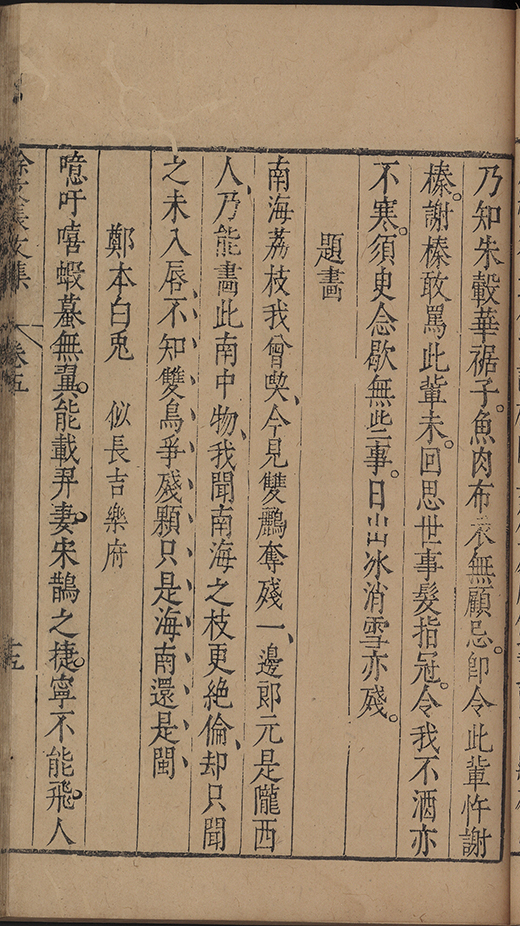 乃知朱轂華裾子。魚肉布衣無顧忌。卽令此輩忤謝
榛。謝榛敢罵此輩未。回思世事髮指冠。令我不酒亦
不寒。須臾念歇無些事。日出冰消雪亦殘。
題畫
南海荔枝我曾喫、今見雙鸝奪殘一、邊郎元是隴西
人、乃能畵此南中物、我聞南海之枝更絕倫、却只聞
之未入唇、不知雙鳥爭殘顆只是海南還是閩
鄭本白兎 似長吉樂府
噫吁嘻蝦蟇無翼。能載羿妻。朱鵲之捷。寧不能飛。人
徐文長文集 卷五 十五